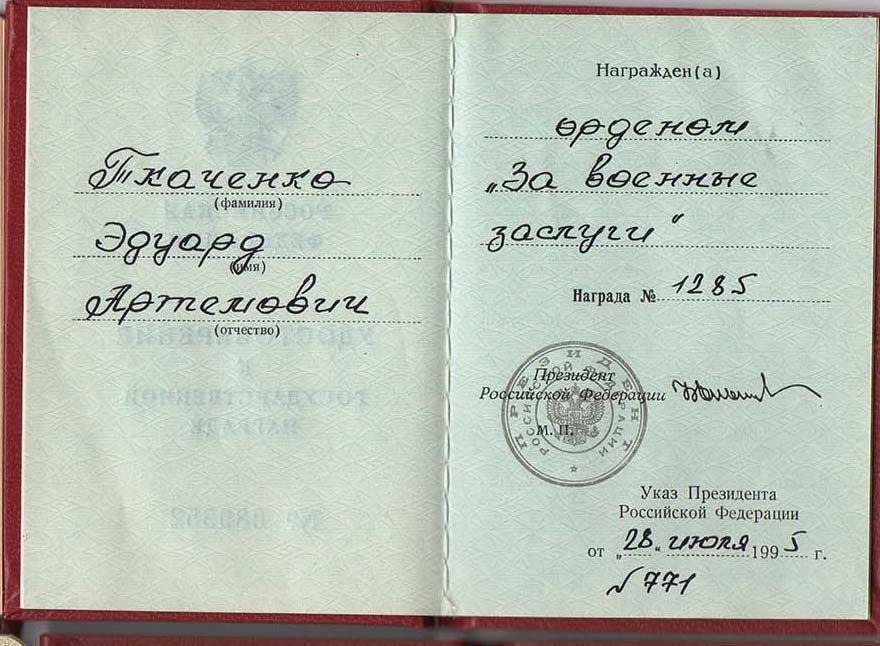 Ткаченко
(фамилия)
Эдуард
(имя)
Артемович
(отчество)
Награжден(а)
орденом
„За военные
заслуги"
Награда № 1285
ПРЕЗИДЕНТ
РОССИЙСКОЙ ФЕДЕРАЦИИ
Президент
Российской Федерации
М. П.
Указ Президента
Российской Федерации
от „28" июля 1995 г.
№ 771